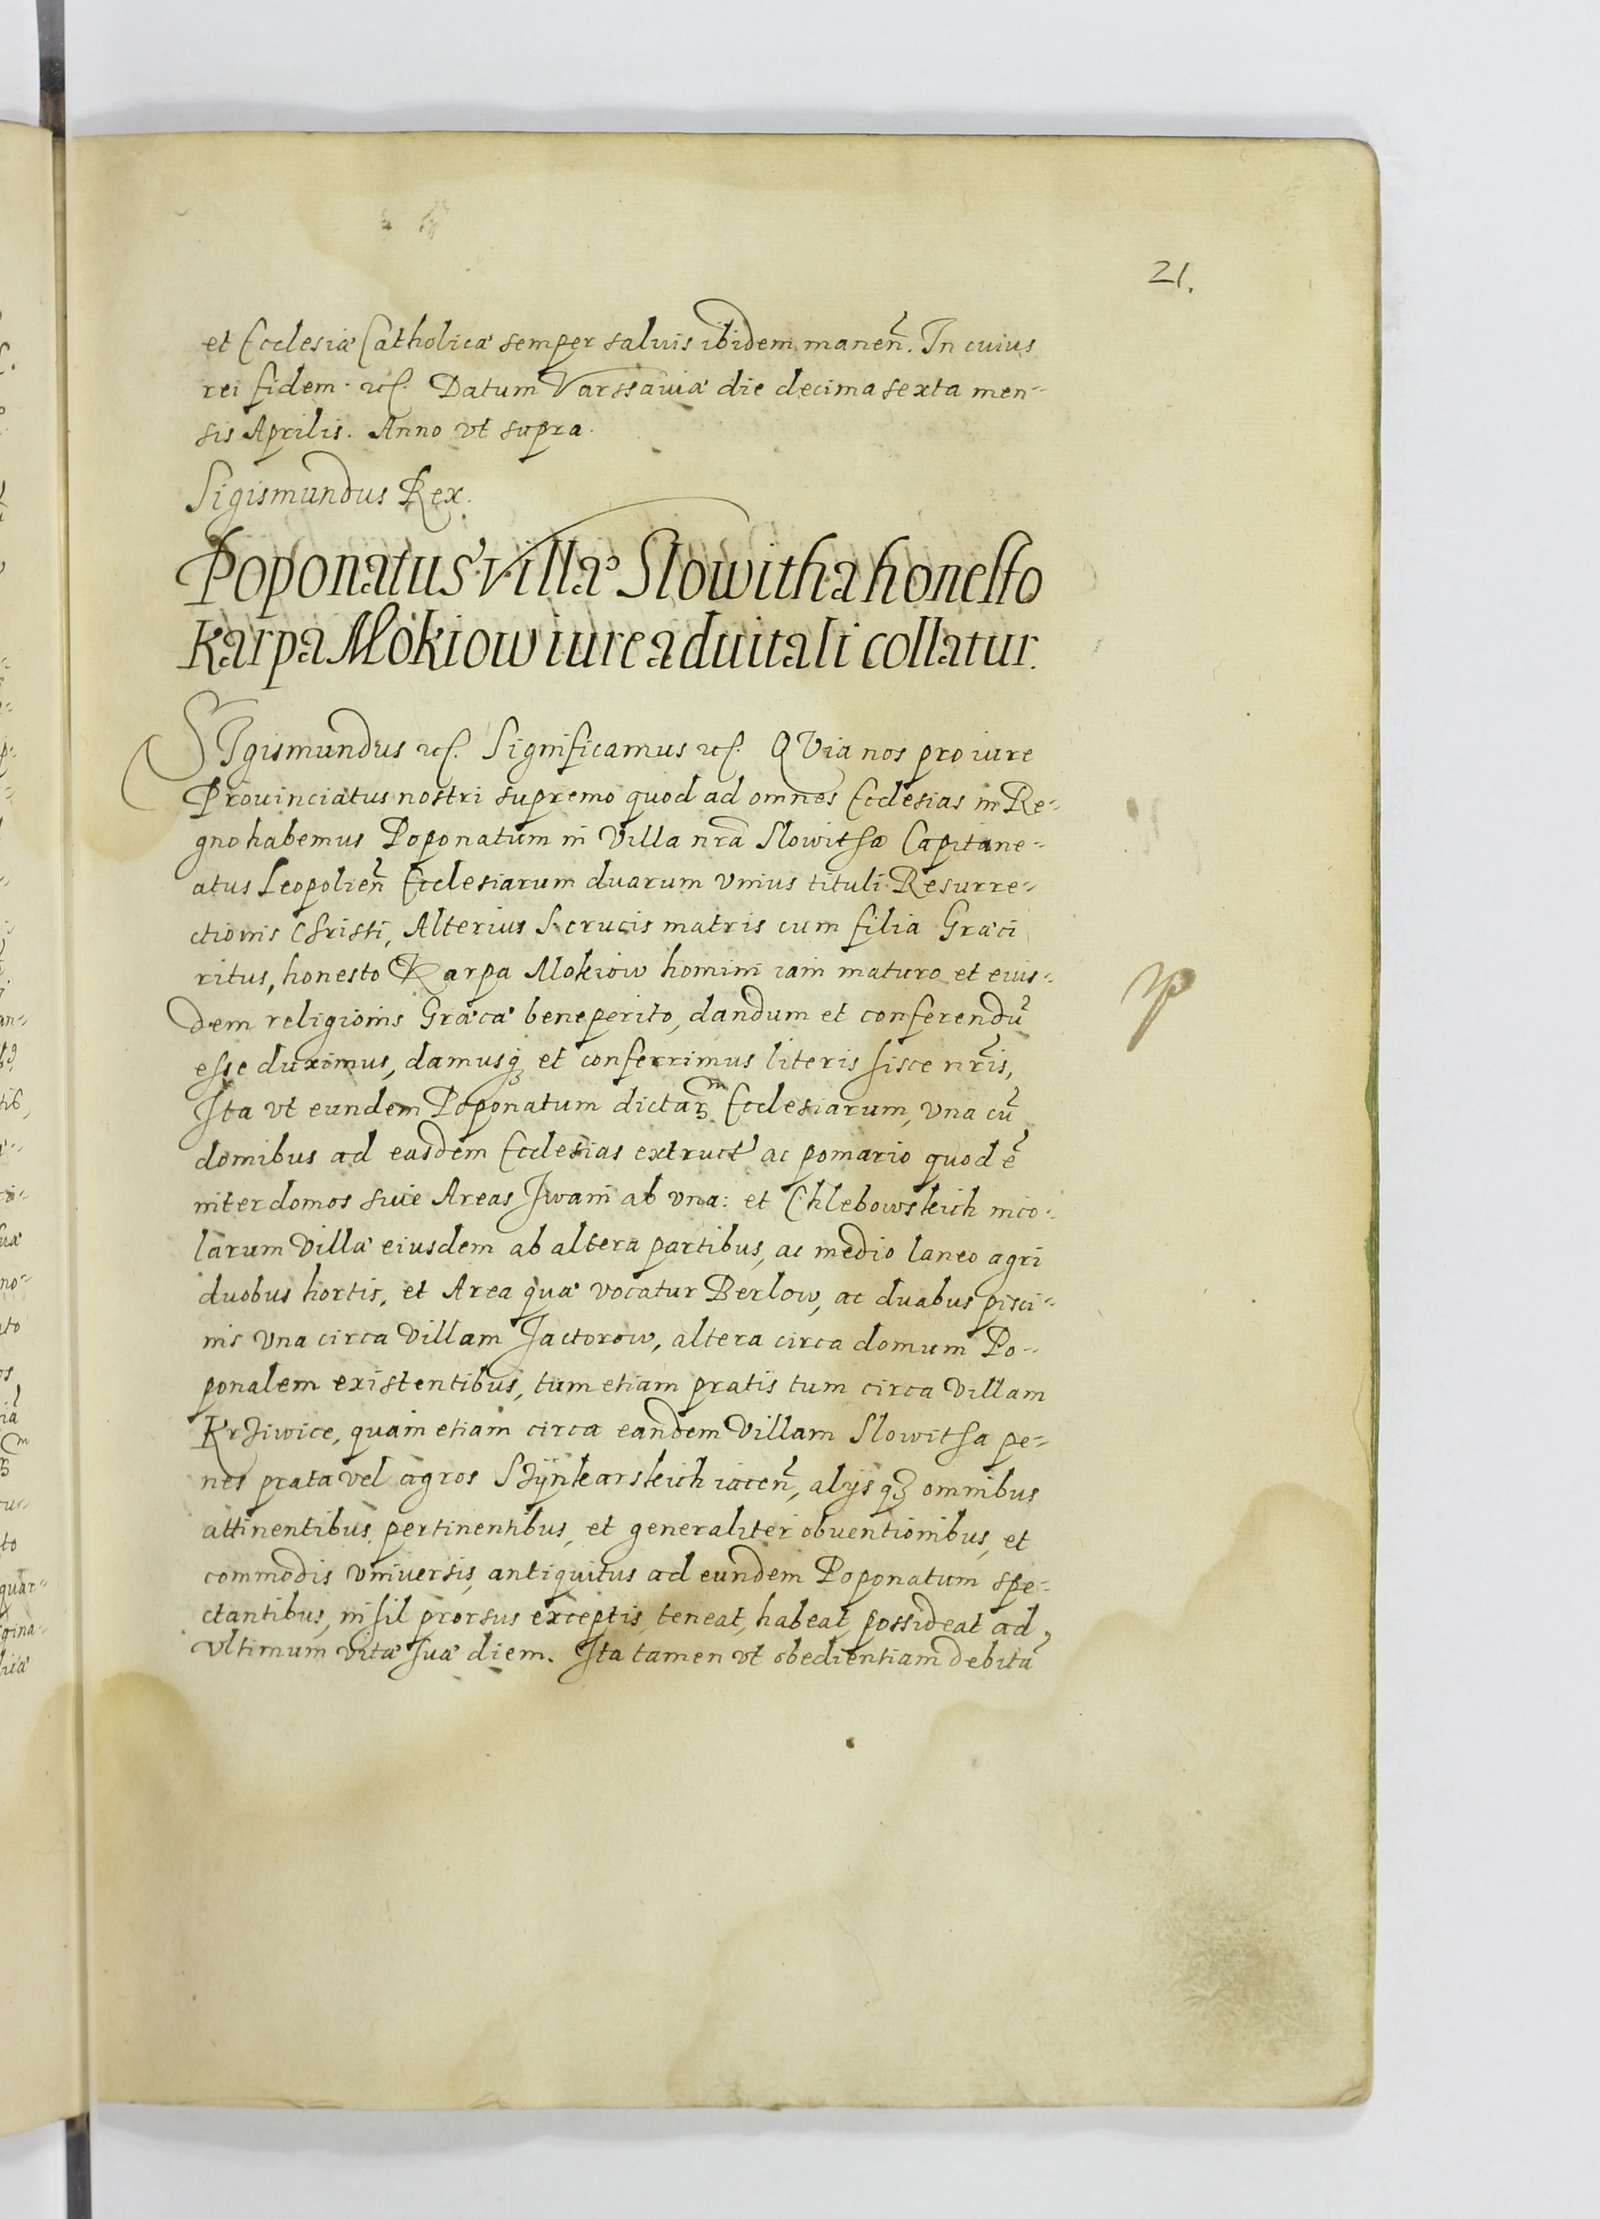 21.
et Ecclesiæ Catholicæ semper saluis ibidem maneñ. In cuius
rei fidem. etc. Datum Varssauiæ die decima sexta men=
sis Aprilis. Anno vt supra.
Sigismundus Rex.
Poponatus villæ Slowitha honesto
Karpa Mokiow iure aduitali collatur.
SIgismundus etc. Significamus etc. QVia nos pro iure
Prouinciatus nostri supremo quod ad omnes Ecclesias in Re=
gno habemus Poponatum in Villa nrã Slowitha Capitane=
atus Leopolień Ecclesiarum duarum vnius tituli Resurre=
ctionis Christi, Alterius S. crucis matris cum filia Græci
ritus, honesto Karpa Mokiow homini iam maturo et eius=
dem religionis Græcæ bene perito, dandum et conferendũ
esse duximus, damusq; et conferrimus literis hisce nr̃is,
Ita vt eundem Poponatum dictarm Ecclesiarum, vna cũ
domibus ad easdem Ecclesias extruct' ac pomario quod ẽ
inter domos siue Areas Iwani ab vna: et Chlebowskich inco=
larum villæ eiusdem ab altera partibus, ac medio laneo agri
duobus hortis, et Area quæ vocatur Berlow, ac duabus pisci=
nis vna circa Villam Jactorow, altera circa domum Po=
ponalem existentibus, tum etiam pratis tum circa Villam
Krziwice, quam etiam circa eandem Villam Slowitha pe=
nes prata vel agros Szynkarskich iaceñ, alijs q; omnibus
attinentibus pertinentibus, et generaliter obuentionibus, et
commodis vniuersis, antiquitus ad eundem Poponatum spe=
ctantibus, nihil prorsus exceptis, teneat, habeat, possideat ad
vltimum vitæ suæ diem. Ita tamen vt obedientiam debitã